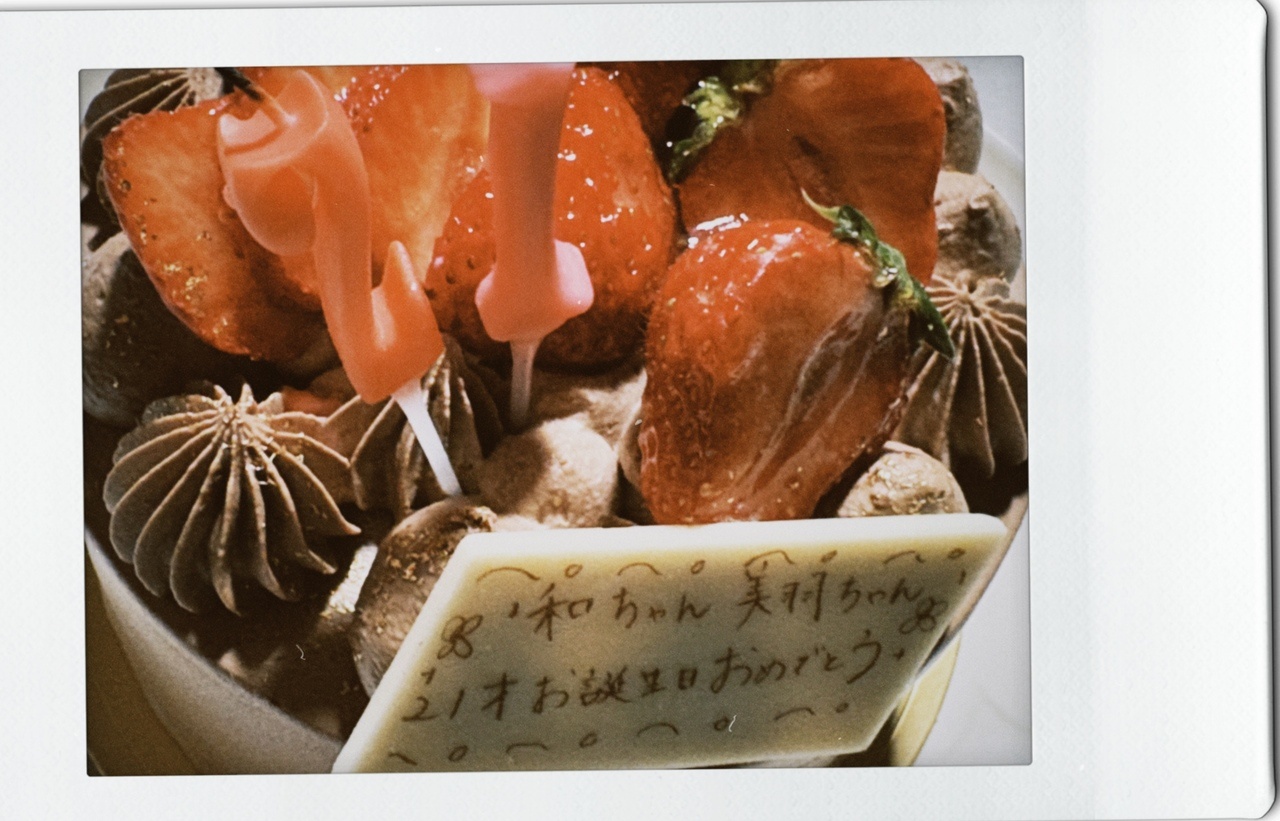 和ちゃん 美羽ちゃん
21才お誕生日おめでとう